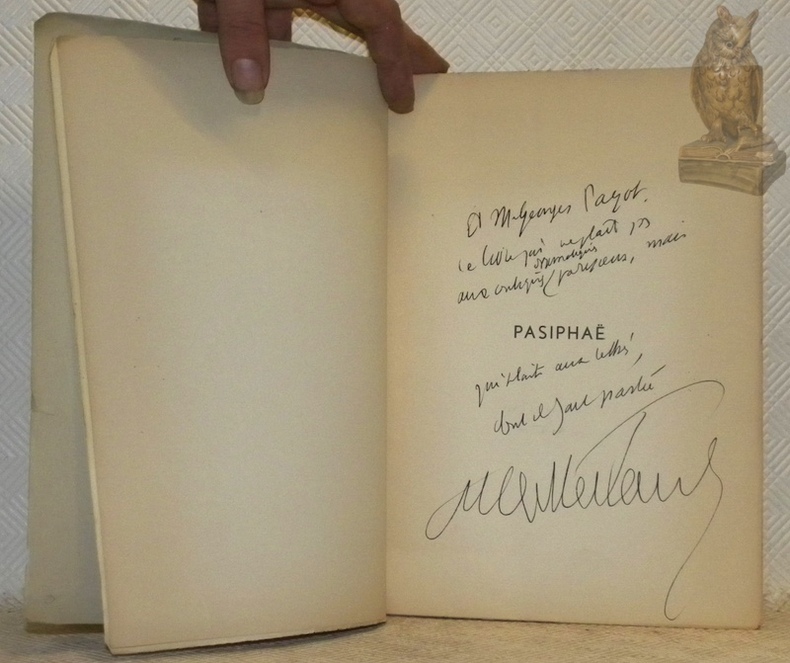 A M. Georges Payot.
ce livre qui ne plaît pas
dramatiques
aux critiques parisiens, mais
PASIPHAË
qui plaît aux lettrés,
dont il fait partie
Montherlant